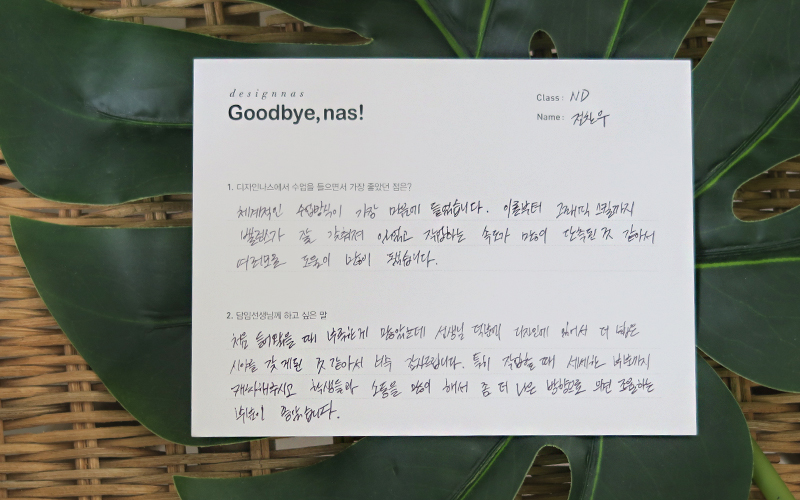 designnas
Goodbye, nas!
Class : ND
Name : 전찬우
1. 디자인나스에서 수업을 들으면서 가장 좋았던 점은?
체계적인 수업방식이 가장 마음에 들었습니다. 이론부터 그래픽 스킬까지
밸런스가 잘 갖춰져 있었고 작업하는 속도가 많이 단축된 것 같아서
여러모로 도움이 많이 됐습니다.
2. 담임선생님께 하고 싶은 말
처음 들어왔을 때 부족한게 많았는데 선생님 덕분에 디자인에 있어서 더 넓은
시야를 갖게된 것 같아서 너무 감사드립니다. 특히 작업할 때 세세한 부분까지
캐치해주시고 학생들과 소통을 많이 해서 좀 더 나은 방향으로 의견 조율하는
부분이 좋았습니다.